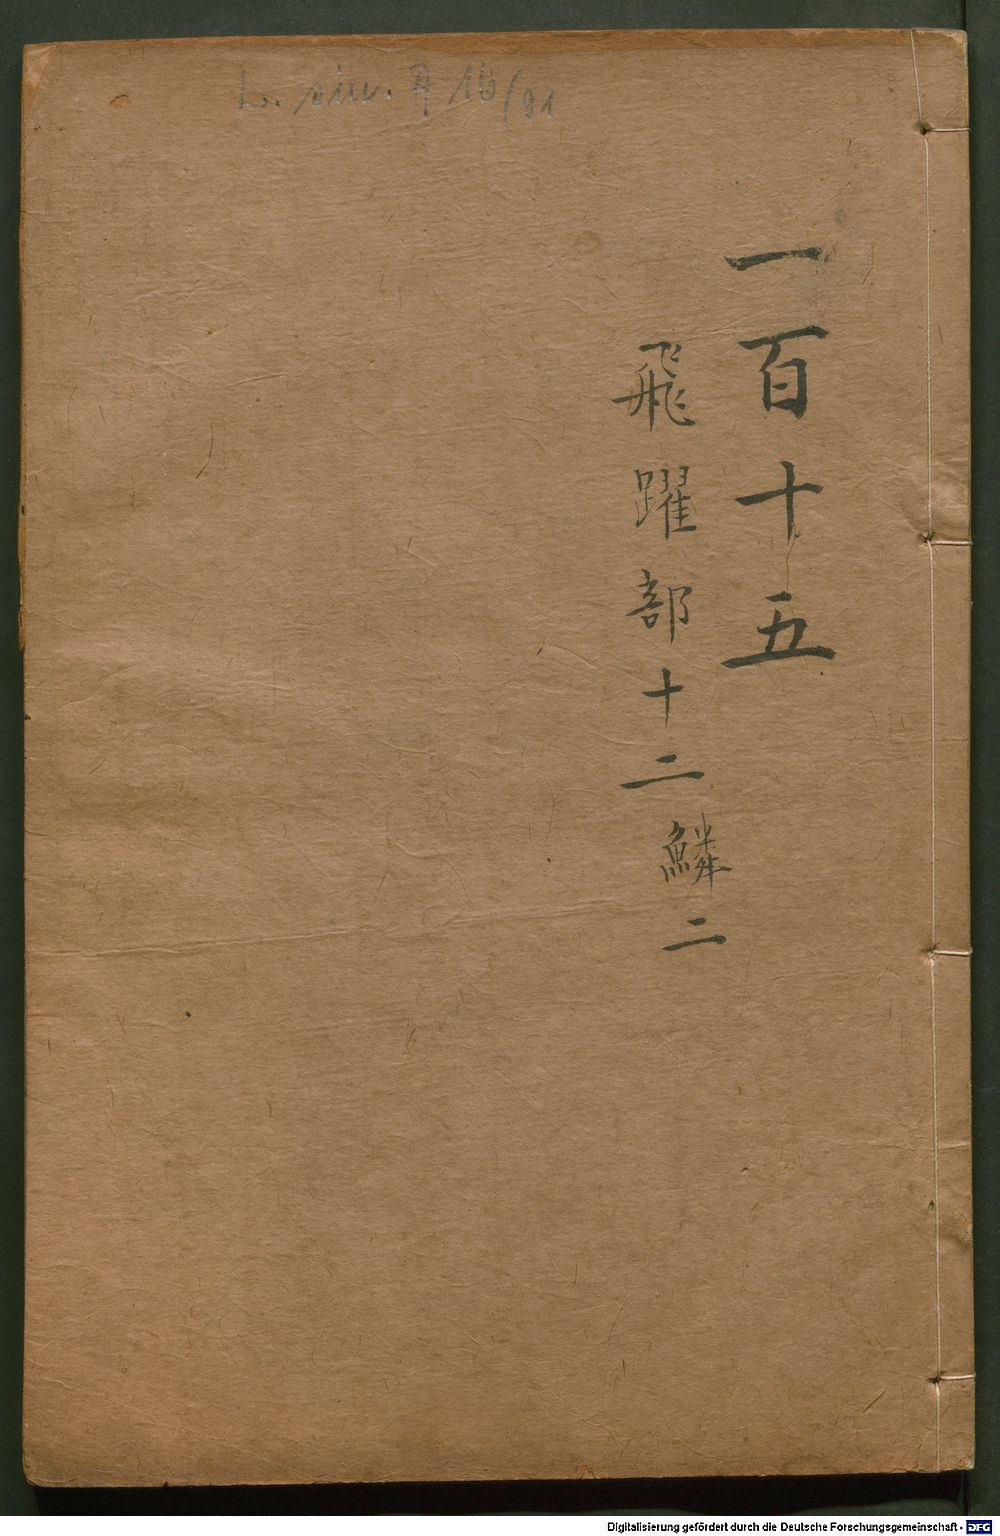 L. sin. A 16/91
一百十五
飛躍部十二鱗二
Digitalisierung gefördert durch die Deutsche Forschungsgemeinschaft - DFG